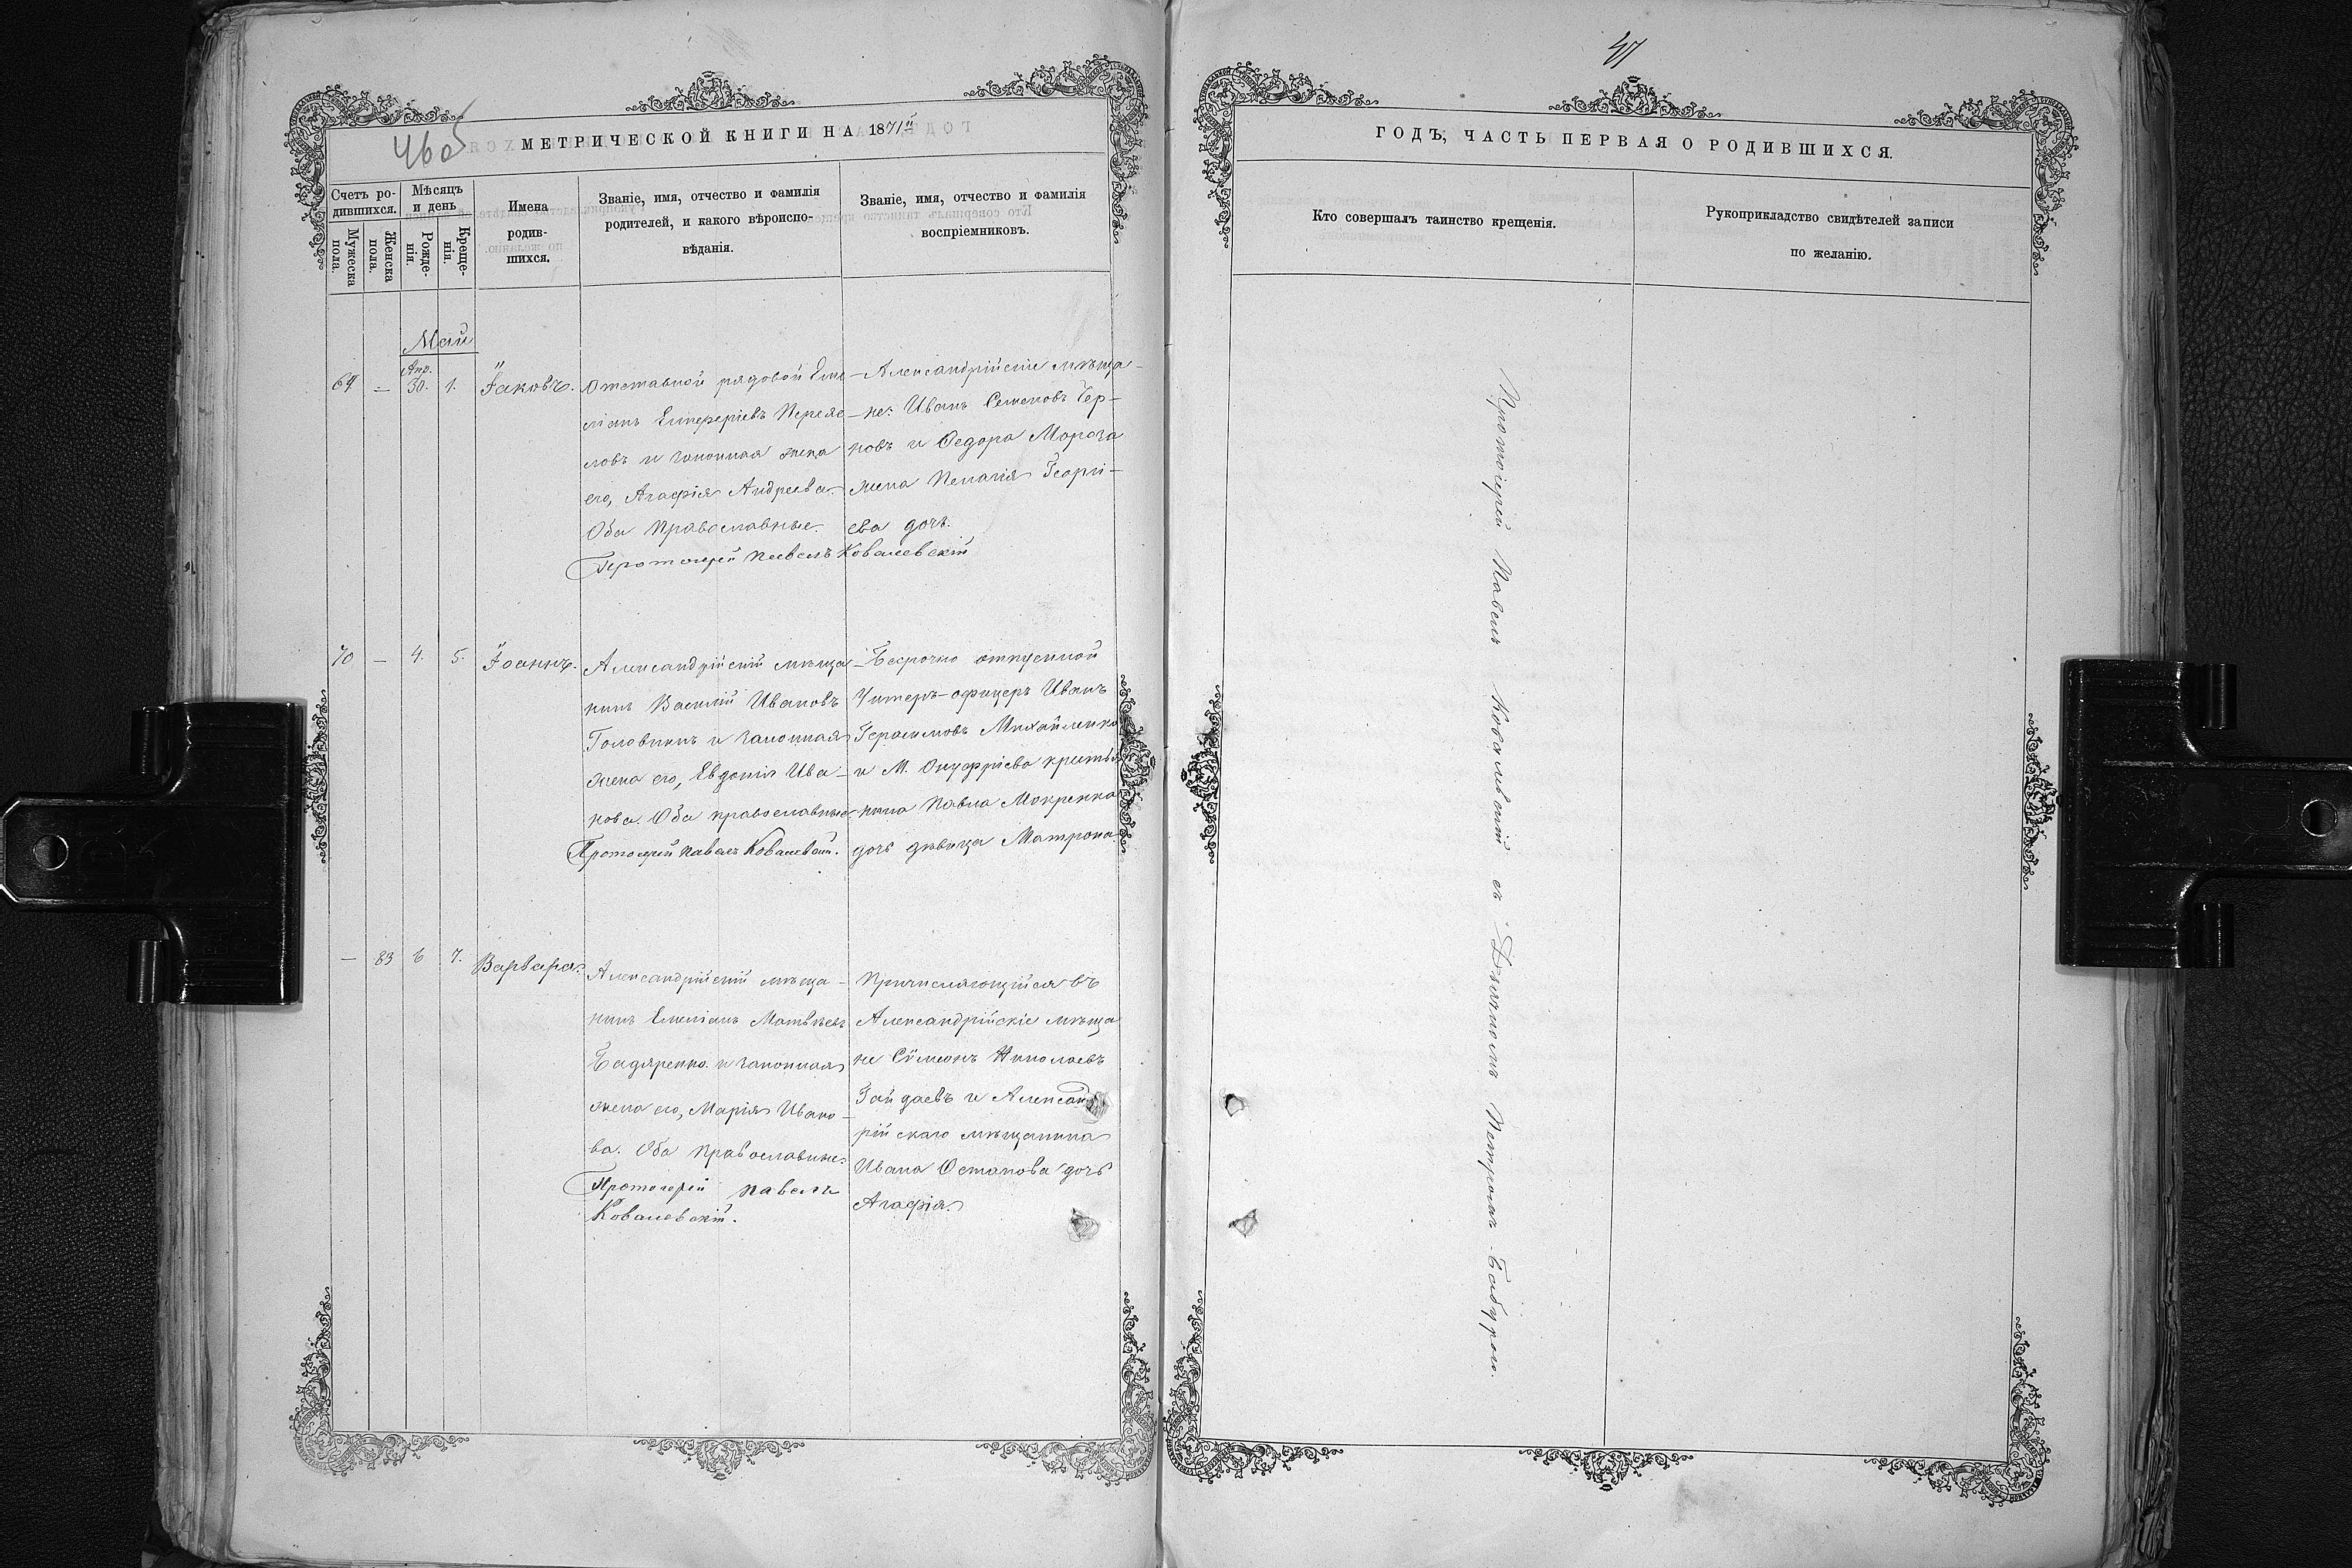 460
МЕТРИЧЕСКОЙ КНИГИ НА 1871й
Счетъ ро-
дившихся.
Мужеска
пола.
Женска
пола.
Мѣсяцъ
и день
Рожде-
нія.
Креще-
нія.
Имена
родив-
шихся.
Званіе, имя, отчество и фамилія
родителей, и какого вѣроиспо-
вѣданія.
Званіе, имя, отчество и фамилія
воспріемниковъ.
Май
69 — Апр. 30. 1. Іаковъ.
Отставной рядовой Еме-
ліанъ
ловъ и законная жена
его, Агафія Андреева.
Оба Православные.
Протоіерей Павелъ Ковалевскій
Александрійскіе мѣща-
не: Иванъ Семеновъ Чер-
новъ и Ѳедора Мороза
жена Пелагія Георгі-
ева дочь.
70 — 4. 5. Іоаннъ.
Александрійскій мѣща-
нинъ Василій Ивановъ
Головкинъ и законная
жена его, Евдокія Ива-
нова. Оба православные.
Протоіерей Павелъ Ковалевскій.
Безсрочно отпускной
Унтеръ-офицеръ Иванъ
Герасимовъ Михайленко
и М. Онуфріева крестья
нина Павла Мокренка
дочь дѣвица Матрона.
— 83 6 7. Варвара.
Александрійскій мѣща-
нинъ Емеліанъ Матвѣевъ
Бадяренко и законная
жена его, Марія Ивано-
ва. Оба Православные.
Протоіерей Павелъ
Ковалевскій.
Причисляющійся въ
Александрійскіе мѣща
не Сѵмеонъ Николаевъ
Гайдаевъ и Александ
рійскаго мѣщанина
Ивана Остапова дочь
Агафія.
47
ГОДЪ, ЧАСТЬ ПЕРВАЯ О РОДИВШИХСЯ.
Кто совершалъ таинство крещенія.
Рукоприкладство свидѣтелей записи
по желанію.
Протоіерей Павелъ Ковалевскій съ Дьякономъ Петромъ Бабурою.